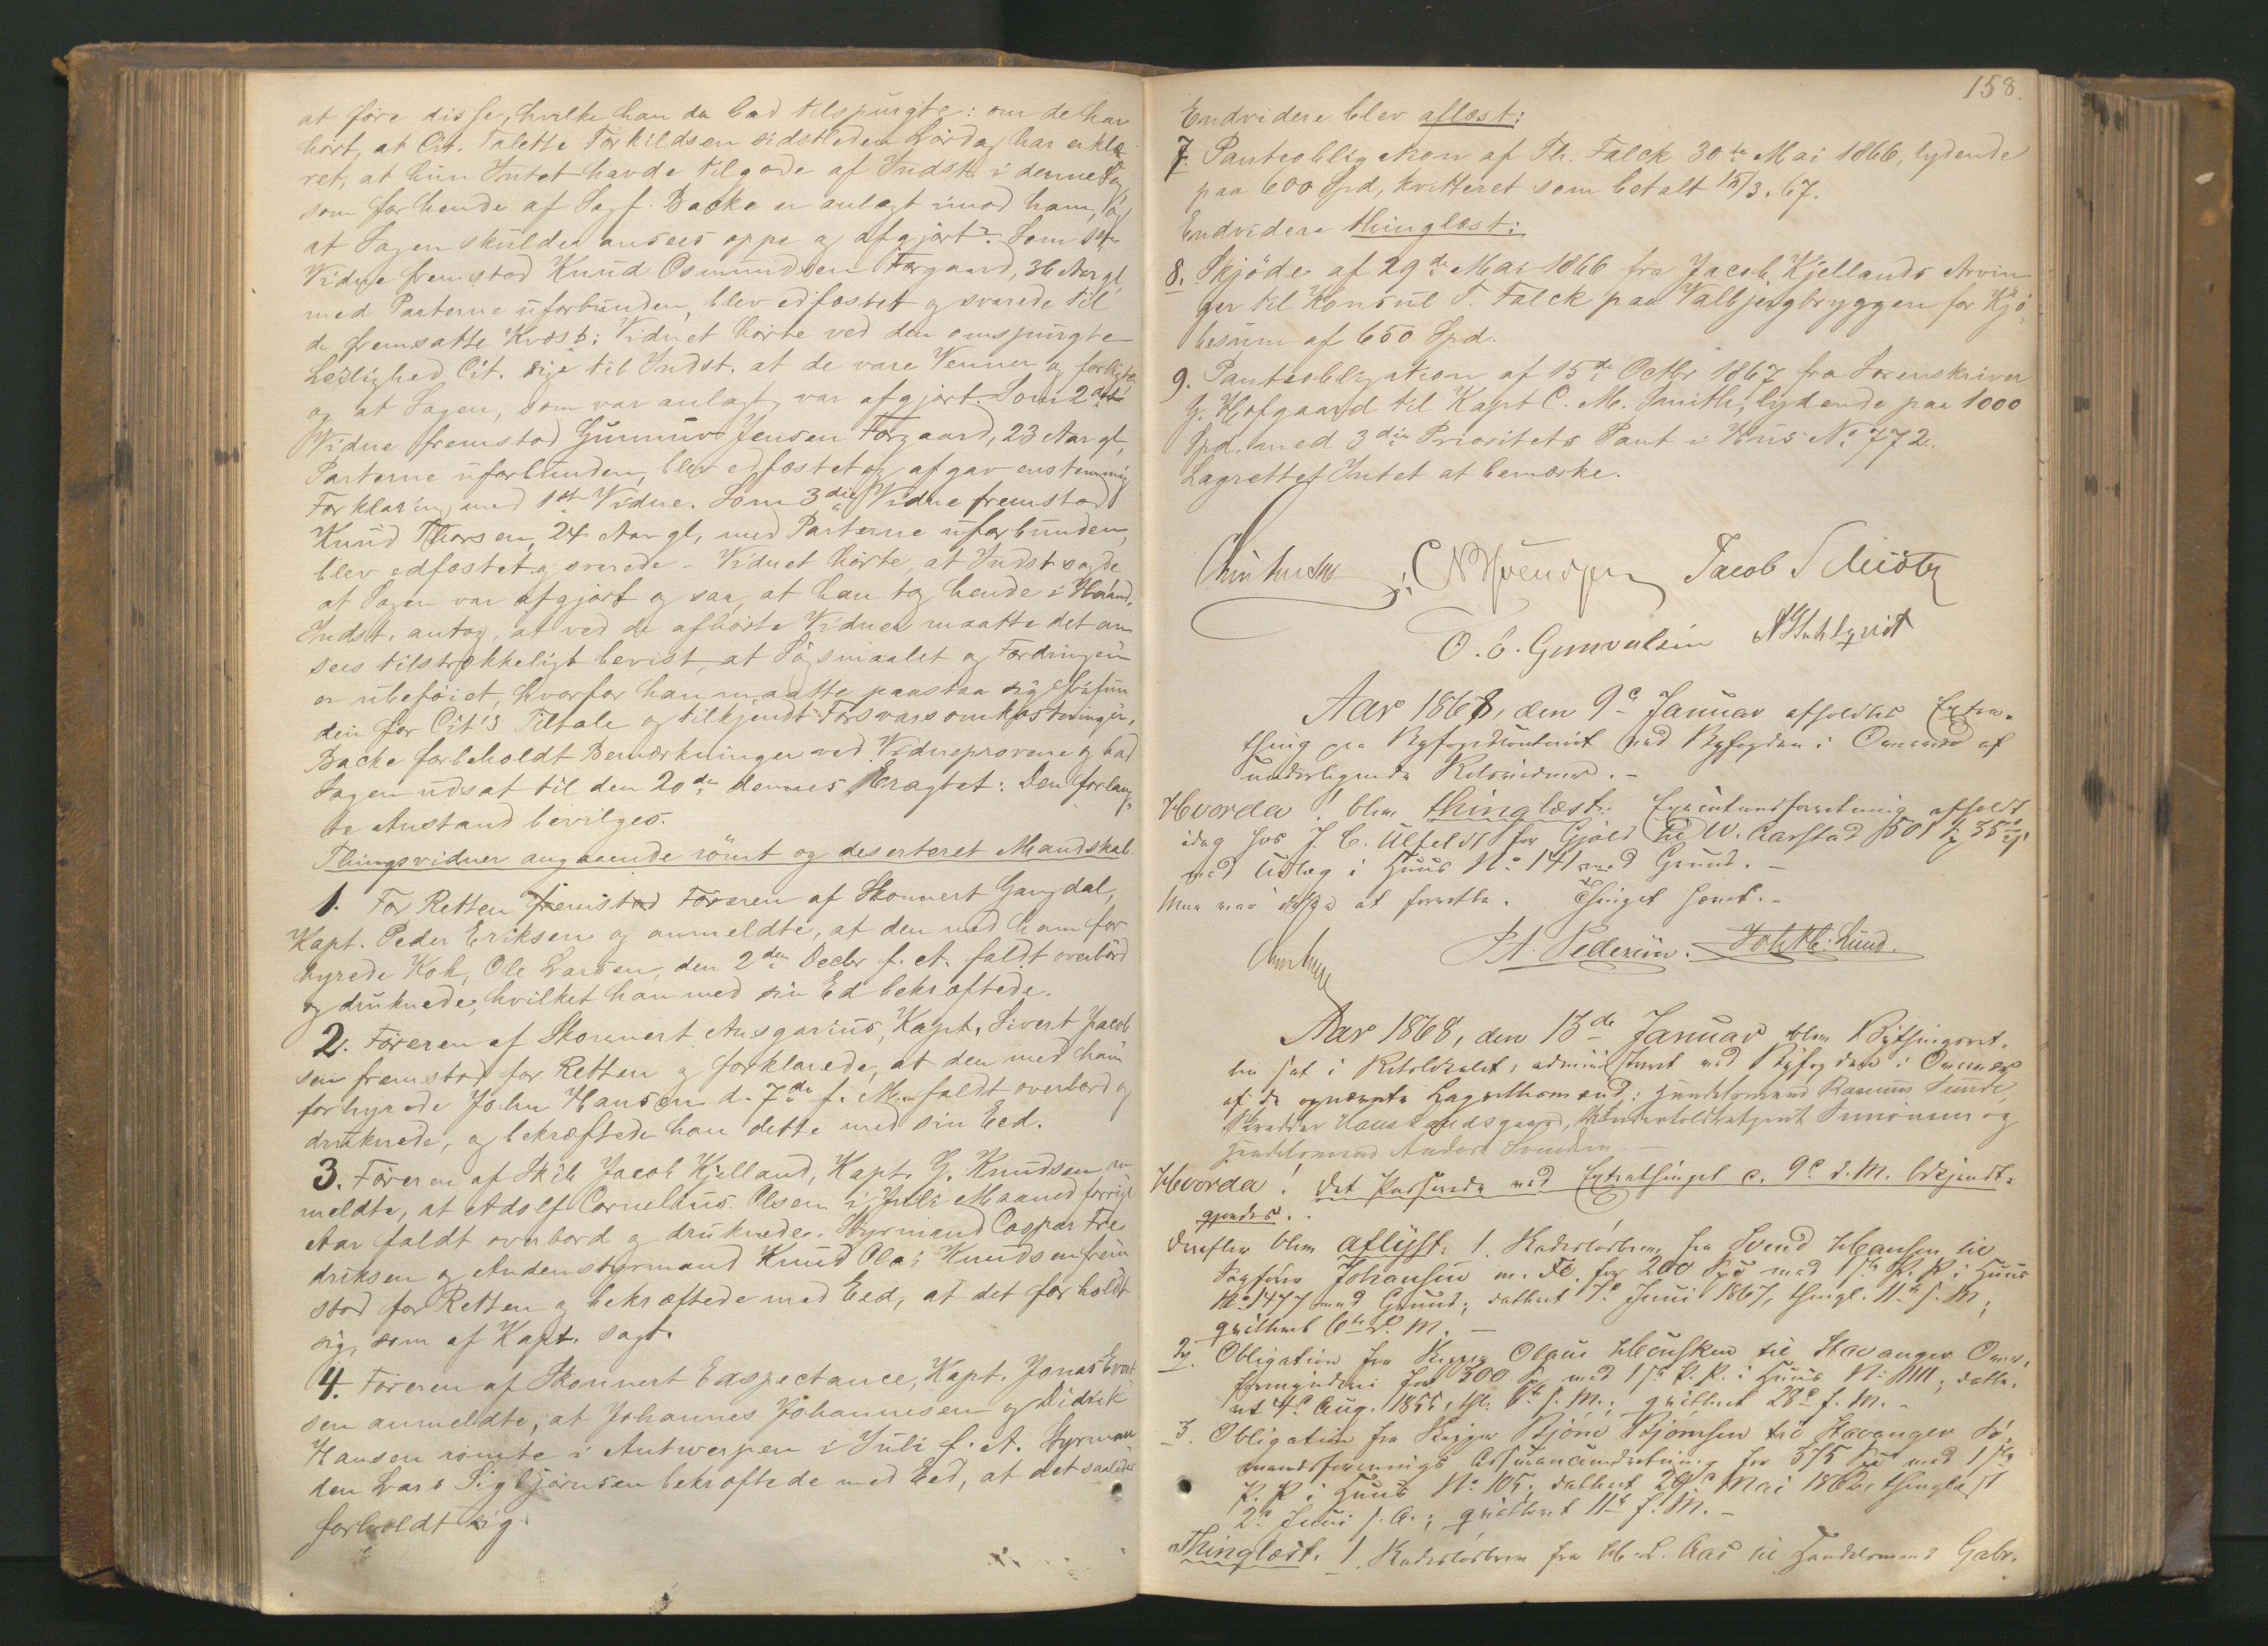 at före disse, hvilke han da bad tilspurgte: om de har
hört, at Cit. Talette Torkildsen sidstleden Lördag har erklæ
ret, at hun Intet havde tilgode af Indst. i denne Sag
som for hende af Sagf. Backe er anlagt imod ham, og
at Sagen skulde ansees oppe og afgjört? Som 1ste
Vidne fremstod Knud Osmundsen Torgaard, 36 Aar gl,
med Parterne uforbunden, blev edfæstet og svarede til
de fremsatte Kvæst: Vidnet hörte ved den omspurgte
Leilighed Cit. sige til Indst. at de vare Venner og forligte
og at Sagen, som var anlagt, var afgjört. Som 2det
Vidne fremstod Gunnuv Jensen Torgaard, 23 Aar gl,
Parterne uforbunden, blev edfæstet og afgav enstemmig
Forklaring med 1ste Vidne. Som 3die Vidne fremstod
Knud Thorsen, 24 Aar gl, med Parterne uforbunden,
blev edfæstet og svarede - Vidnet hörte, at Indst sagde
at Sagen var afgjört og saa, at han tog hende i Haand.
Indst. antog, at ved de afhörte Vidner maatte det an
sees tilstrækkeligt bevist, at Sögsmaalet og Fordringen
er ubeföiet, hvorfor han maatte paastaa sig frifun
den for Cit's Tiltale og tilkjendt Forsvarsomkostninger,
Backe forbeholdt Bemærkninger ved Vidneprovene og bad
Sagen udsat til den 20de dennes Eragtet: Den forlang
te Anstand bevilges.
Thingsvidner angaaende römt og deserteret Mandskab.
1. For Retten fremstod Föreren af Skonnert Gangdal,
Kapt. Peder Eriksen og anmeldte, at den med ham for
hyrede Kok, Ole Larsen, den 2den Decbr f. A. faldt overbord
og druknede, hvilket han med sin Ed bekræftede.
2. Föreren af Skonnert Ansgarius, Kapt. Sivert Jacob
sen fremstod for Retten og forklarede, at den med ham
forhyrede John Hansen d. 7de f. M. faldt overbord og
druknede, og bekræftede han dette med sin Eed.
3. Föreren af Skib Jacob Kjelland, Kapt. G. Knudsen an
meldte, at Adolf Cornelius Olsen i Juli Maaned forrige
Aar faldt overbord og druknede. Styrmand Caspar Fre
driksen og Andenstyrmand Knud Olai Knudsen frem
stod for Retten og bekræftede med Eed, at det forholdt
sig, som af Kapt. sagt.
4. Föreren af Skonnert Expectance, Kapt. Jonas Evert
sen anmeldte, at Johannes Johannesen og Didrik
Hansen römte i Antwerpen i Juli f. A. Styrman
den Lars Sigbjörnsen bekræftede med Eed, at det saaledes
forholdt sig.
158.
Endvidere blev aflæst:
7. Panteobligation af Th. Falck 30te Mai 1866, lydende
paa 600 Spd, kvitteret som betalt 15/3. 67.
Endvidere thinglæst:
8. Skjöde af 29de Mai 1866 fra Jacob Kjellands Arvin
ger til Konsul T. Falck paa Valbjergbryggen for Kjö
besum af 650 Spd.
9. Panteobligation af 15de Octbr 1867 fra Sorenskriver
G. Hofgaard til Kapt C. M. Smith, lydende paa 1000
Spd. med 3die Prioritets Pant i Hus No 772.
Lagrettet Intet at bemærke.
Jacob Schiötz
O. C. Gunvaldsen
Aar 1868, den 9e Januar afholdtes Extra-
thing paa Byfogedkontoret ved Byfogden i Overvær af
underlegende Retsvidner. -
Hvorda! blev thinglæst: Executionsforretning afholdt
idag hos J. C. Ulfeldt for Gjæld til W. Aarstad 501 35
med Udlæg i Huus No 141 med Grund. -
Mere var ikke at forrette. Thinget hævet. -
P. A. Pedersen. Lund.
Aar 1868, den 13de Januar blev Bythingsret-
ten sat i Retslokalet, administreret ved Byfogden i Overvær
af de opnævnte Lagrettesmænd: Handelsmand Rasmus Sunde,
Skrædder Landsgaard, Undertoldbetjent Simonsen og
Handelsmand Anders Svendsen -
Hvorda! det Passerede ved Extrathinget d. 9e d. M. bekjendt-
gjordes.
Derefter blev aflyst: 1. Kaderlösbrev fra Svend Hansen til
Sagförer Johansen m. Fl. for 200 Spd med 1ste P. P. i Huus
No 1477 med Grund; dateret 7e Juni 1867, thingl. 11te s. M.;
qvitteret 6te d. M. -
2. Obligation fra Skipper Olaus til Stavanger Over-
formynderi for 300 Spd med 1ste P. P. i Huus No 1111, date-
ret 4e Aug. 1855, thl. 6te s. M.; qvitteret 28e f. M. -
3. Obligation fra Skipper Björn Björnsen til Stavanger Sö-
mandsforenings Assuranceindretning for 375 Spd med 1ste
P. P. i Huus No 105, dateret 26e Mai 1862, thinglæst
2e Juni s. A.; qvitteret 11te f. M. -
Thinglæst. 1. Kaderlösbrev fra H. L. Aas til Handelsmand Gabr.